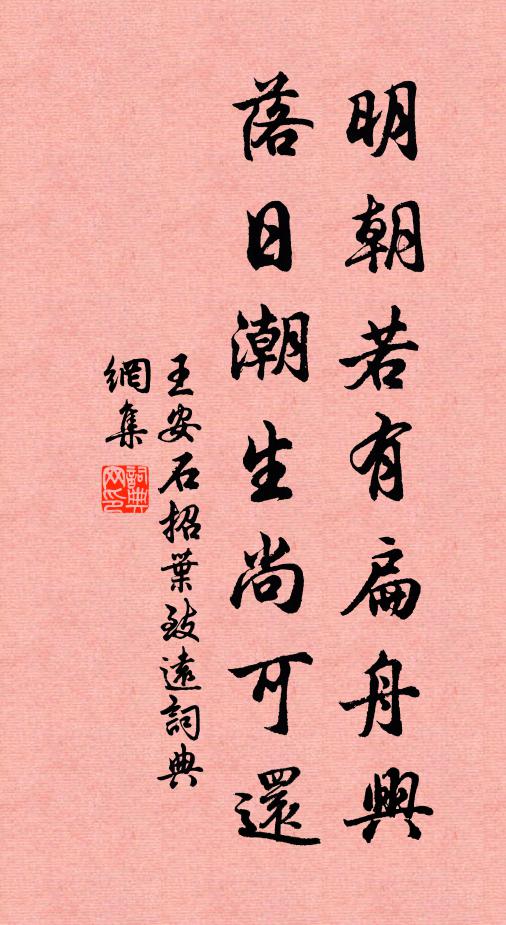 明朝若有扁舟興
落日潮生尚可還
王安石招葉致遠詞典
網集
詞典網印